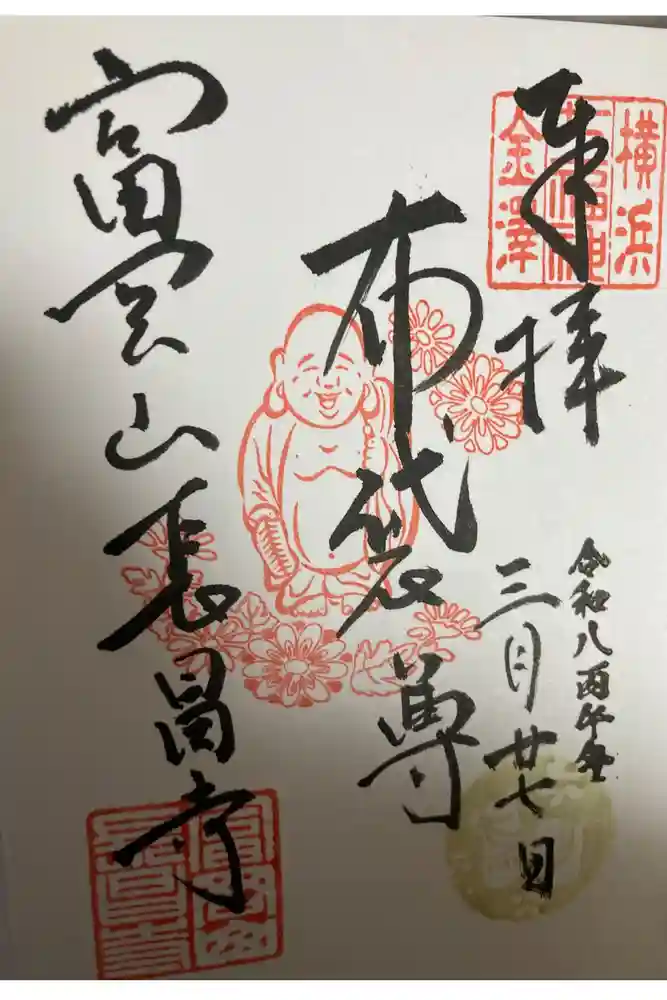 奉拝
横浜
七福神
金澤
令和八丙午年
三月廿七日
布袋尊
富雲山長昌寺